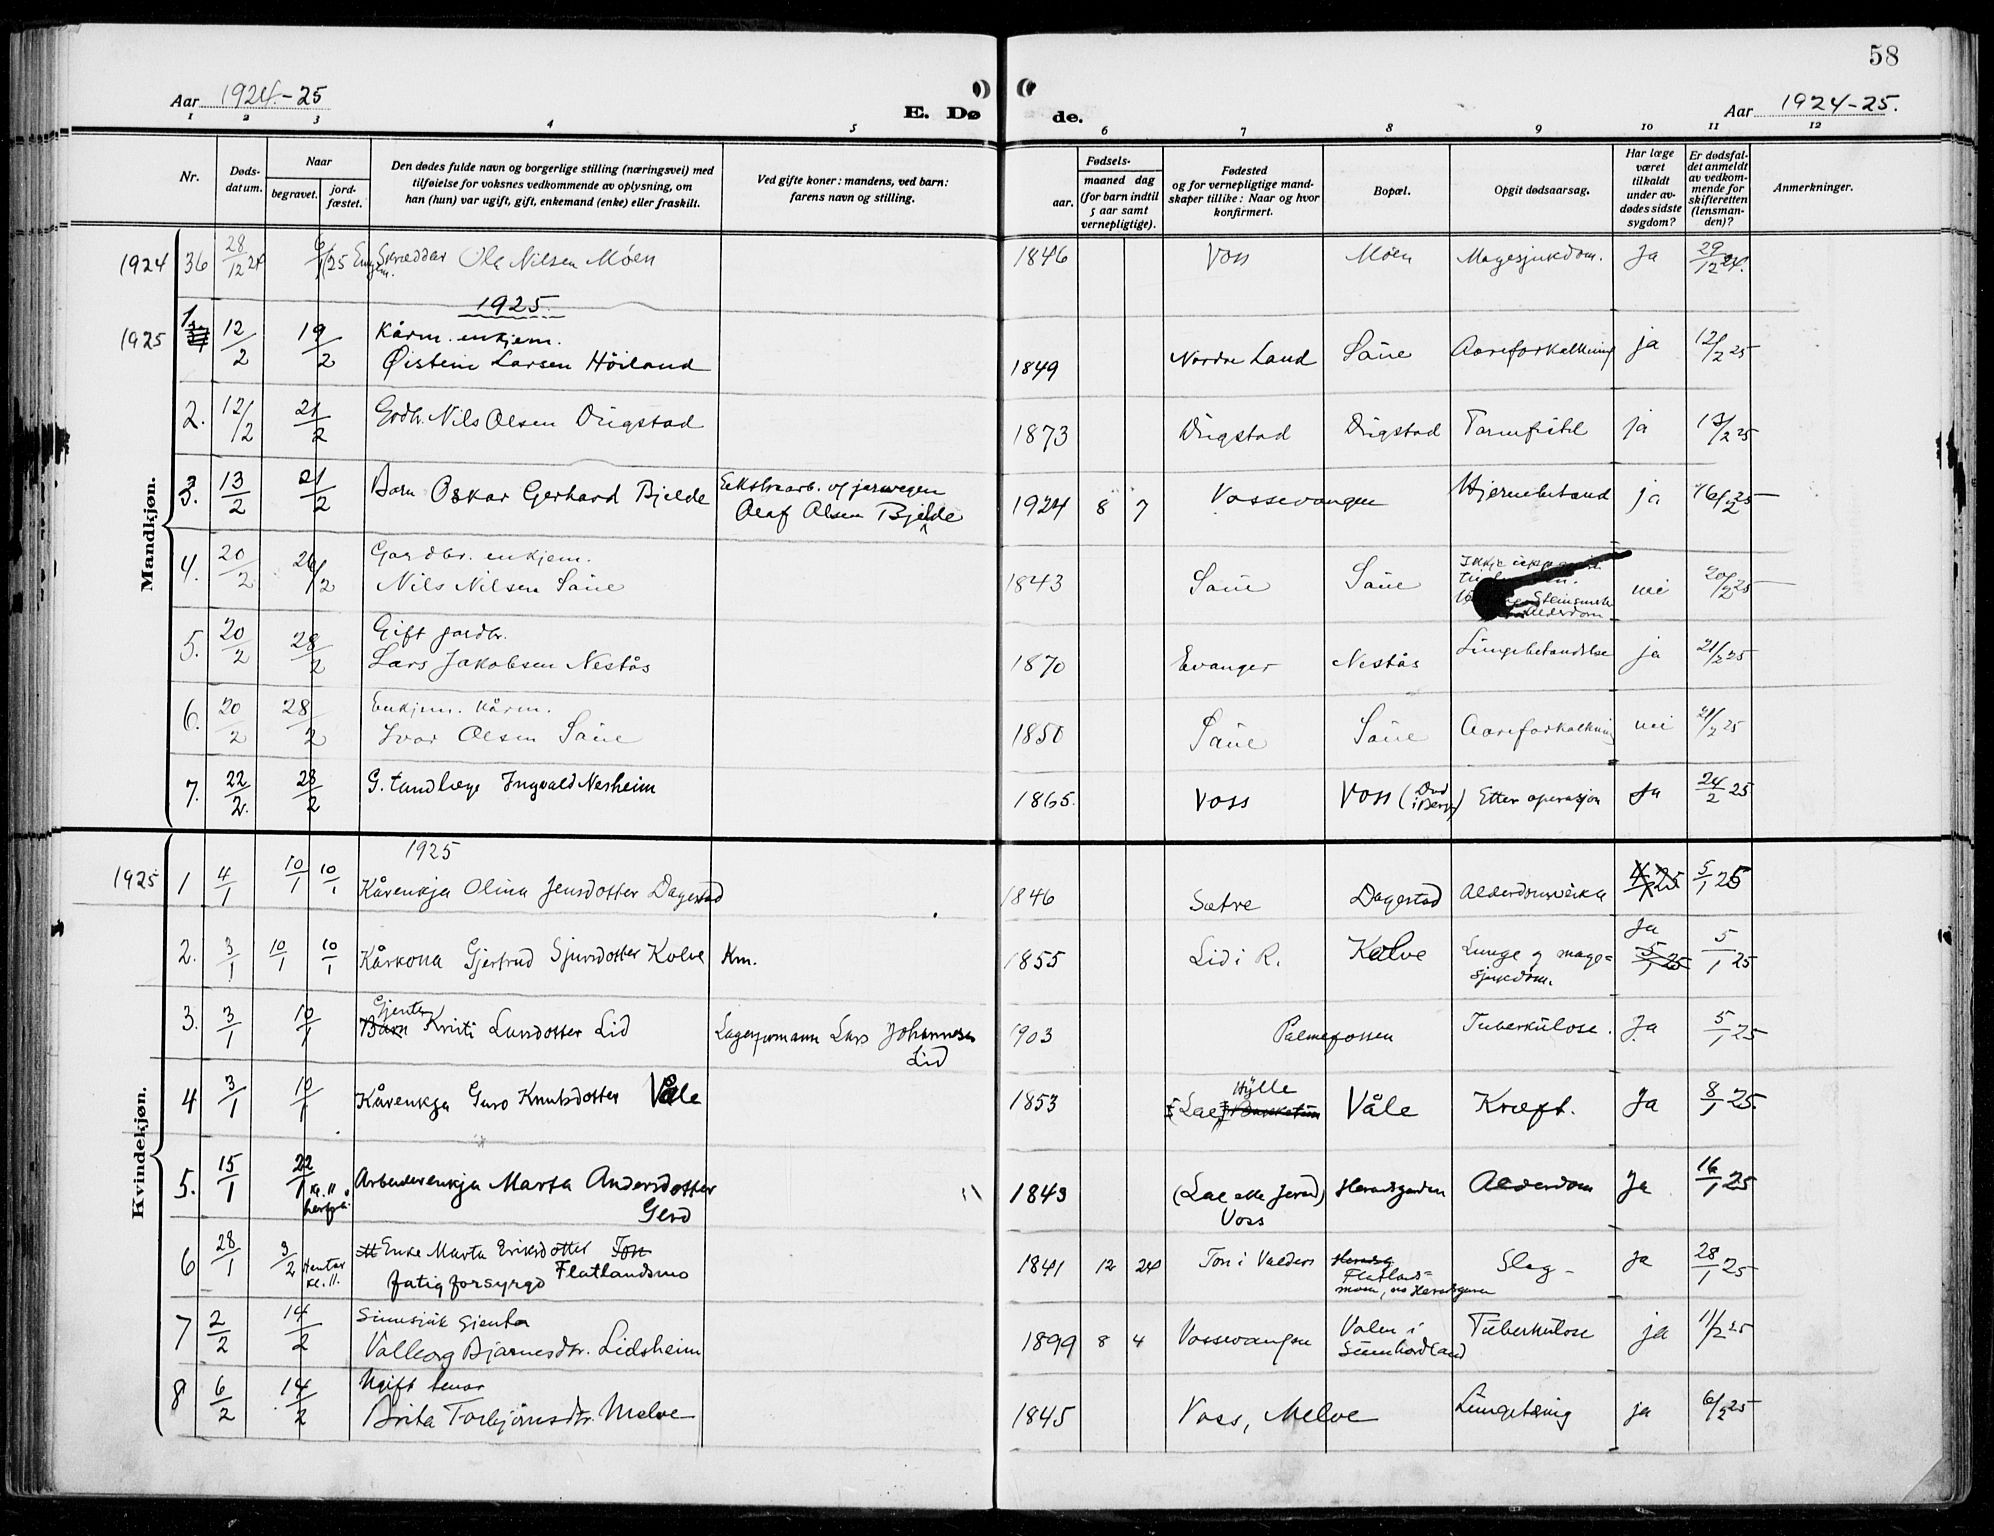 58
Aar 1924-25
E. Dø de.
Aar 1924-25.
1 2 3 4 5 6 7 8 9 10 11 12
Nr.
Døds-
datum.
Naar
begravet.
jord-
fæstet.
Den dødes fulde navn og borgerlige stilling (næringsvei) med
tilføielse for voksnes vedkommende av oplysning, om
han (hun) var ugift, gift, enkemand (enke) eller fraskilt.
Ved gifte koner: mandens, ved barn:
farens navn og stilling.
Fødsels-
aar.
maaned dag
(for barn indtil
5 aar samt
vernepligtige).
Fødested
og for vernepligtige mand-
skaper tillike: Naar og hvor
konfirmert.
Bopæl.
Opgit dødsaarsag.
Har læge
været
tilkaldt
under av-
dødes sidste
sygdom?
Er dødsfal-
det anmeldt
av vedkom-
mende for
skifteretten
(lensman-
den)?
Anmerkninger.
Mandkjøn.
1924 36 28/12 24 6/1 25 Skræddar Ole Nilsen Møen 1846 Voss Møen Magesjukdom. Ja 29/12 24.
1925.
1925 1. 12/2 19/2 Kårm. enkjem.
Øistein Larsen Höiland 1849 Nordre Land Sāue Aareforkalkning ja 12/2 25
2. 12/2 21/2 Grdbr. Nils Olsen Dūgstad 1873 Dūgstad Dūgstad Tarmfistel ja 13/2 25
3. 13/2 21/2 Barn Oskar Gerhard Bjelde Ekstraarb. v/ jarnvegen
Olaf Olsen Bjelde 1924 8 7 Vossevangen Hjernebetend ja 16/2 25
4. 20/2 26/2 Gardbr. enkjem.
Nils Nilsen Sāue 1843 Sāue Sāue Ikkje
Alderdom nei 20/2 25
5. 20/2 28/2 Gift gardbr.
Lars Jakobsen Nestås 1870 Evanger Nestås Lūngebetændelse ja 21/2 25
6. 20/2 28/2 Enkjem. kårm.
Ivar Olsen Sāue 1850 Sāue Sāue Aareforkalkning nei 21/2 25
7. 22/2. 28/2 G. tandlæge Ingvald Nesheim 1865. Voss Voss (Død i Berg.) Etter operasjon Ja 24/2 25
Kvindekjøn.
1925
1925 1 4/1 10/1 10/1 Kårenkja Olina Jensdotter Dagestad 1846 Sætre Dagestad Alderdomsveikn 4/1 25 5/1 25
2. 3/1 10/1 10/1 Kårkona Gjertrud Sjursdotter Kolve Km. 1855 Lid i R. Kolve Lunge og mage=
sjukdom. Ja 5/1 25 5/1 25
3. 3/1 10/1 Gjenta
Barn Kristi Larsdotter Lid Lagerformann Lars Johannesen
Lid 1903 Palmefossen Tuberkulose. Ja. 5/1 25
4 3/1 10/1 Kårenkja Guro Knutsdotter Våle 1853 Hylle
Våle Kræft. Ja 8/1 25.
5. 15/1 22/1 kl. 11 Arbeiderenkja Marta Andersdotter
Gerd 1843 (Lae elle Jerad)
Voss Heradsgarden Alderdom Ja 16/1 25
6 28/1 3/2 Hentar
kl. 11. Enke Marta Eriksdotter Ton
fatigforsyrgd Flatlandsmo 1841 12 24 Ton i Valders Heradsg
Flatlands=
moen, no Heradsgarden Slag - Ja 28/1 25
7 2/2 14/2 Sinnsjūk gjenta
Valborg Bjarnesdtr. Lidsheim 1899 8 4 Vossevangen Valen i
Sūnnhordland Tūberkūlose ja 11/2 25
8 6/2 14/2 Ugift
Brita Torbjørnsdtr. Melve 1845 Voss, Melve Lūngetæring ja 6/2 25